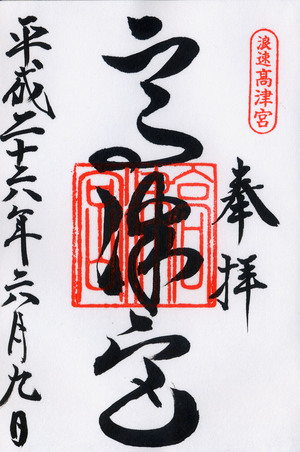 浪速高津宮
奉拝
高津宮
平成二十六年六月九日